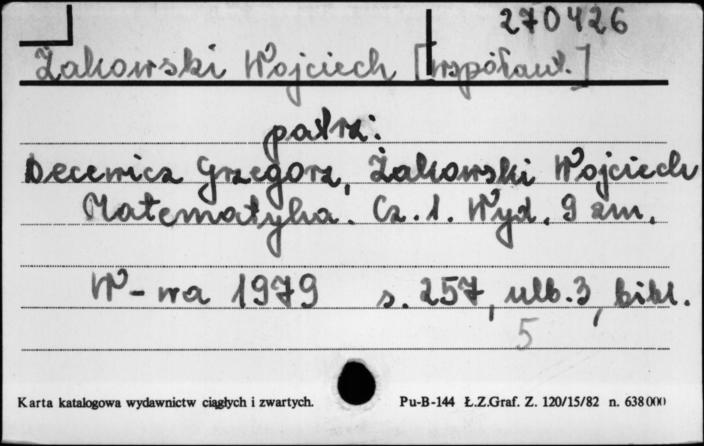 270426
Żakowski Wojciech [współaut.]
patrz:
Decewicz Grzegorz, Żakowski Wojciech
Matematyka. Cz. 1. Wyd. 9 zm.
W-wa 1979 s. 257, ulb. 3, bibl.
5
Karta katalogowa wydawnictw ciągłych i zwartych. Pu-B-144 Ł.Z.Graf. Z. 120/15/82 n. 638000